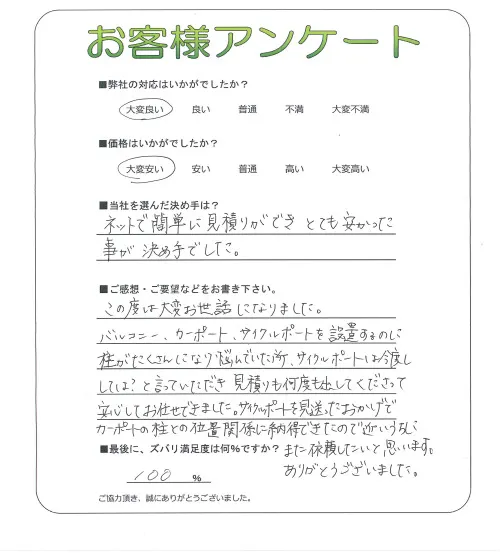 お客様アンケート
■弊社の対応はいかがでしたか？
大変良い 良い 普通 不満 大変不満
■価格はいかがでしたか？
大変安い 安い 普通 高い 大変高い
■当社を選んだ決め手は？
ネットで簡単に見積りができとても安かった
事が決め手でした。
■ご感想・ご要望などをお書き下さい。
この度は大変お世話になりました。
バルコニー、カーポート、サイクルポートを設置するのに
柱がたくさんになり悩んでいた所、サイクルポートは今度に
しては？と言っていただき見積りも何度も出してくださって
安心してお任せできました。サイクルポートを見送ったおかげで
カーポートの柱との位置関係に納得できたので近いうちに
また依頼したいと思います。
ありがとうございました。
■最後に、ズバリ満足度は何%ですか？
100 %
ご協力頂き、誠にありがとうございました。